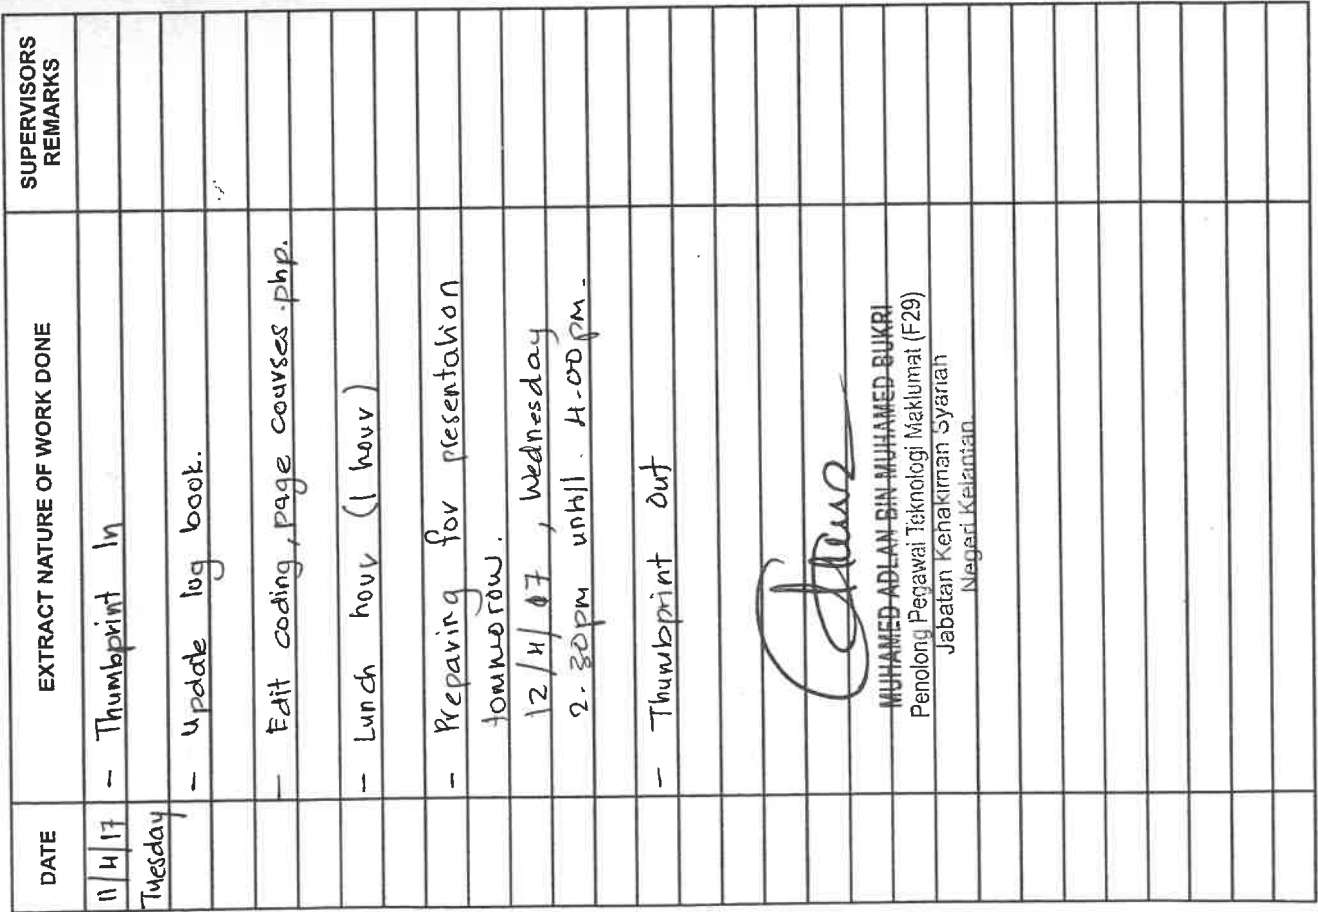 DATE
EXTRACT NATURE OF WORK DONE
SUPERVISORS
REMARKS
11/4/17
- Thumbprint In
Tuesday
- Update log book.
- Edit coding, page courses.php.
- Lunch hour (1 hour)
- Preparing for presentation
tommorow.
12/4/07, Wednesday
2.30pm untill 4.00pm.
- Thumbprint Out
MUHAMED ADLAN BIN MUHAMED BUKRI
Penolong Pegawai Teknologi Maklumat (F29)
Jabatan Kehakiman Syariah
Negeri Kelantan.